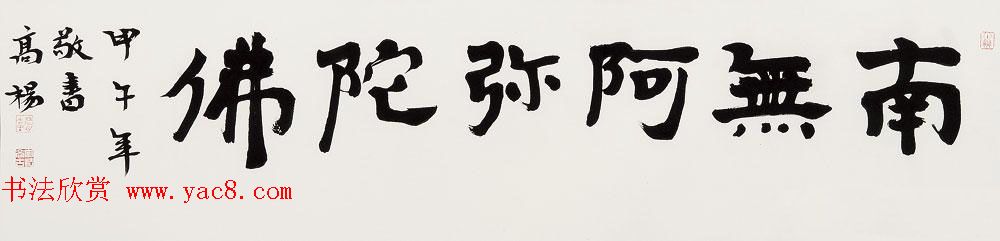 南無阿弥陀佛
甲午年
敬書
高楊
书法欣赏 www.yac8.com